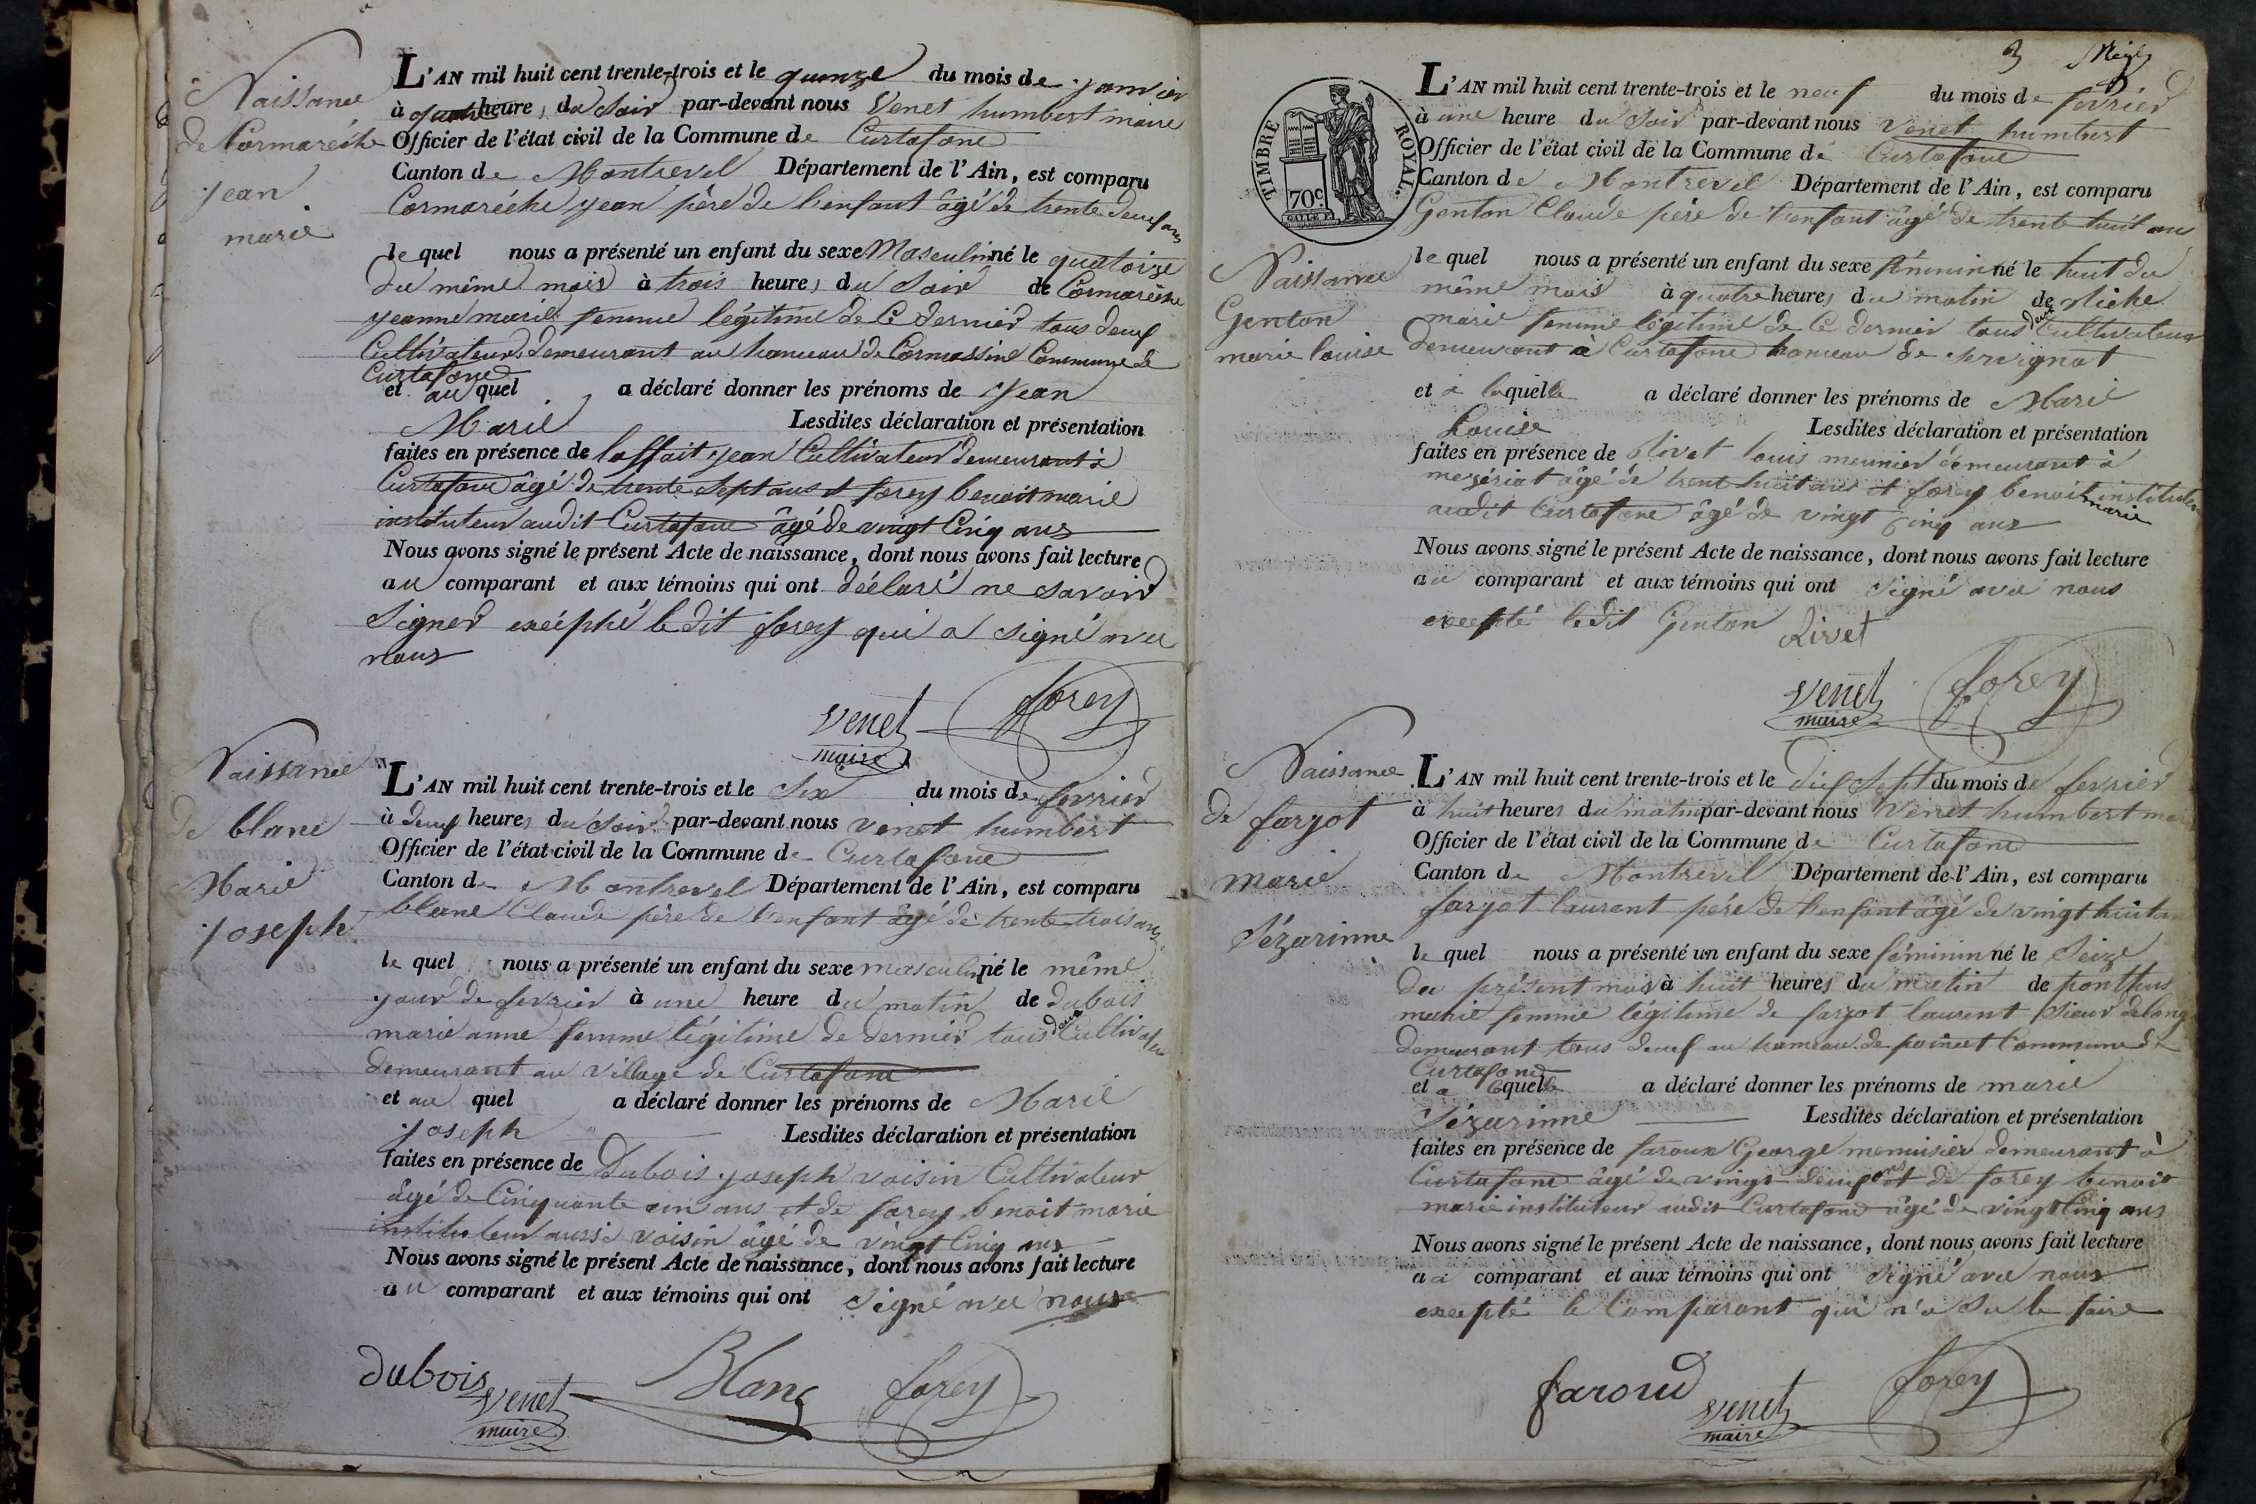 Naissance
de Cormaréche
jean
marie
L'AN mil huit cent trente-trois et le quinze du mois de janvier
à quatre heures du soir par-devant nous Venet humbert maire
Officier de l'état civil de la Commune de Curtafone
Canton de Montrevel Département de l'Ain, est comparu
Cormaréche jean père de l'enfant âgé de trente deux ans
le quel nous a présenté un enfant du sexe Masculin né le quatorze
du même mois à trois heures du soir de Cormaréche
jeanne marie femme légitime de ce dernier tous deux
Cultivateurs demeurant au hameau de Cormassine Commune de
Curtafone
et au quel a déclaré donner les prénoms de Jean
Marie Lesdites déclaration et présentation
faites en présence de laffait jean Cultivateur demeurant à
Curtafone âgé de trente sept ans et forey benoit marie
instituteur audit Curtafone âgé de vingt Cinq ans
Nous avons signé le présent Acte de naissance, dont nous avons fait lecture
au comparant et aux témoins qui ont déclaré ne savoir
signer excéphé le dit forey qui a signé avec
nous
Venet forey
maire
Naissance
de blanc
Marie
joseph
L'AN mil huit cent trente-trois et le Six du mois de fevrier
à deux heures du soir par-devant nous Venet humbert
Officier de l'état civil de la Commune de Curtafone
Canton de Montrevel Département de l'Ain, est comparu
blanc Claude père de l'enfant âgé de trente trois ans
le quel nous a présenté un enfant du sexe masculin né le même
jour de fevrier à une heure du matin de dubois
marie anne femme légitime de dernier tous deux Cultivateurs
demeurant au village de Curtafone
et au quel a déclaré donner les prénoms de Marie
joseph Lesdites déclaration et présentation
faites en présence de Dubois joseph voisin Cultivateur
âgé de Cinquante cin ans et de forey benoit marie
instituteur aussi voisin âgé de vingt Cinq ans
Nous avons signé le présent Acte de naissance, dont nous avons fait lecture
au comparant et aux témoins qui ont signé avec nous
dubois Venet Blanc forey
maire
3
TIMBRE ROYAL.
70c
Naissance
Genton
marie louise
L'AN mil huit cent trente-trois et le neuf du mois de fevrier
à une heure du soir par-devant nous Venet humbert
Officier de l'état civil de la Commune de Curtafone
Canton de Montrevel Département de l'Ain, est comparu
Genton Claude père de l'enfant âgé de trente huit ans
le quel nous a présenté un enfant du sexe féminin né le huit du
même mois à quatre heures du matin de
marie femme légitime de ce dernier tous deux Cultivateurs
demeurant à Curtafone hameau de
et à laquelle a déclaré donner les prénoms de Marie
Louise Lesdites déclaration et présentation
faites en présence de Rivet louis meunier demeurant à
mezériat âgé de trent huit ans et forey benoit marie instituteur
audit Curtafone âgé de vingt Cinq ans
Nous avons signé le présent Acte de naissance, dont nous avons fait lecture
au comparant et aux témoins qui ont signé avec nous
excepté ledit Genton Rivet
Venet forey
maire
Naissance
de farjot
marie
Sézarinne
L'AN mil huit cent trente-trois et le dix sept du mois de fevrier
à huit heures du matin par-devant nous Venet humbert maire
Officier de l'état civil de la Commune de Curtafone
Canton de Montrevel Département de l'Ain, est comparu
farjot laurent père de l'enfant âgé de vingt huit ans
le quel nous a présenté un enfant du sexe féminin né le Seize
du présent mois à huit heures du matin de ponthus
marie femme légitime de farjot laurent Sieur de long
demeurant tous deux au hameau de poincet Commune de
Curtafone
et a laquelle a déclaré donner les prénoms de marie
Sézarinne Lesdites déclaration et présentation
faites en présence de faroux George menuisier demeurant à
Curtafone âgé de vingt deux ans et de forey benoit
marie instituteur audit Curtafone âgé de vingt Cinq ans
Nous avons signé le présent Acte de naissance, dont nous avons fait lecture
au comparant et aux témoins qui ont signé avec nous
excepté le Comparant qui n'a Su le faire
faroud Venet forey
maire